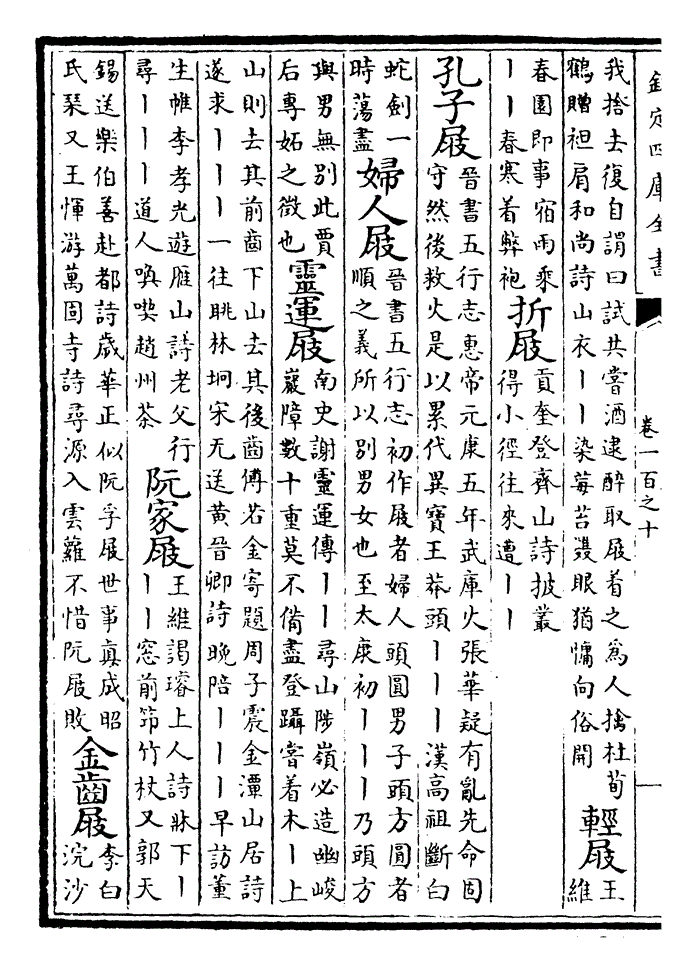 欽定四庫全書 卷一百之十 一
我捨去復自謂曰試共嘗酒逮醉取屐着之為人擒杜荀
鶴贈袒肩和尚詩山衣丨丨染莓苔䨇眼猶慵向俗開
輕屐
王
維
春園即事宿雨乘
丨丨春寒着弊袍
折屐
貢奎登齊山詩披叢
得小徑往來遭丨丨
孔子屐
晉書五行志惠帝元康五年武庫火張華疑有亂先命固
守然後救火是以累代異寶王莽頭丨丨丨漢高祖斷白
蛇劍一
時蕩盡
婦人屐
晉書五行志初作屐者婦人頭圓男子頭方圓者
順之義所以別男女也至太康初丨丨丨乃頭方
與男無別此賈
后專妬之徵也
靈運屐
南史謝靈運傳丨丨尋山陟嶺必造幽峻
巖障數十重莫不備盡登躡嘗着木丨上
山則去其前齒下山去其後齒傅若金寄題周子震金潭山居詩
遂求丨丨丨一往眺林坰宋无送黄晉卿詩晚陪丨丨丨早訪董
生帷李孝光遊雁山詩老父行
尋丨丨丨道人喚喫趙州茶
阮家屐
王維謁璿上人詩牀下丨
丨丨窓前筇竹杖又郭天
錫送樂伯善赴都詩歲華正似阮孚屐世事真成昭
氏琴又王惲游萬固寺詩尋源入雲蘿不惜阮屐敗
金齒屐
李白
浣沙